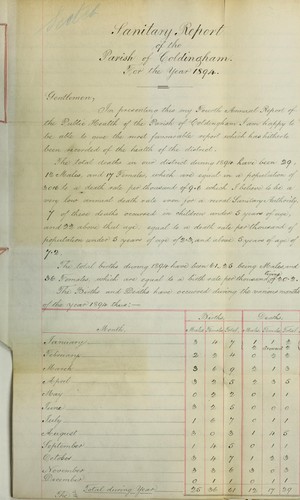 Sanitary Report
of the
Parish of Coldingham.
For the Year 1894.
Gentlemen,
In presenting this my Fourth Annual Report of
the Public Health of the Parish of Coldingham I am happy to
be able to give the most favourable report which has hitherto
been recorded of the health of the district.
The total deaths in our district during 1894 have been 29.
12 Males, and 17 Females, which are equal in a population of
to a death rate per thousand of 9.6 which I believe to be a
very low annual death rate even for a rural Sanitary Authority.
7 of these deaths occurred in children under 5 years of age,
and 22 above that age. equal to a death rate per thousand of
population under 5 years of age of 2.3, and above 5 years of age of
7.2.
The total births during 1894 have been 61. 25 being Males and
36 Females, which are equal to a birth rate per thousand living of 20.2.
The Births and Deaths have occurred during the various months
of the year 1894 thus:—
Births. Deaths.
Month. Males Females Total. Males Females Total.
January 3 4 7 1 1 2
February 2 2 4 0 2 2
March 3 6 9 2 1 3
April 3 2 5 2 3 5
May
June 3 2 5 0 0 0
July 1 6 7
August 3 0 3 1 4 5
September 1 4 5 0 1
October 3 4 7 1 2 3
November 3 3 6 3 0 3
December 0 1 1 0 1 1
Total during Year 25 36 61 12 17 29
The